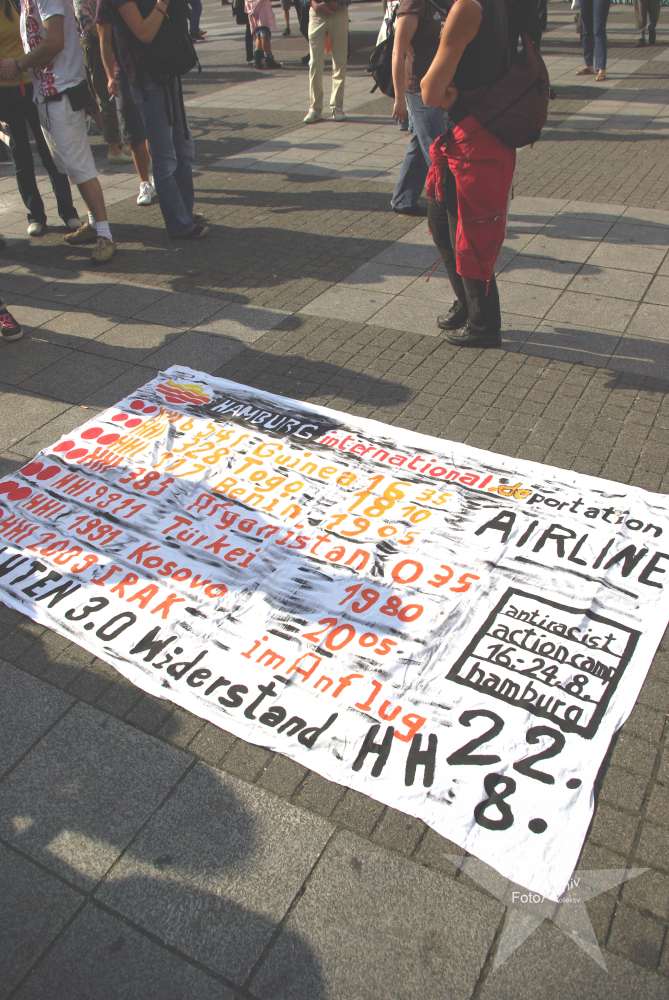 HAMBURG international .deportation
AIRLINE
Guinea 16 35
HHI 328 Togo 18 10
HHI 117 Benin 19 05
HHI 383 Afganistan 0 35
HHI 9971 Türkei 19 80
HHI 1991 Kosovo 20 05
HHI 2089 IRAK im Anflug
HTEN 3.0 Widerstand HH 22.
8.
antiracist
action camp
16:24.8.
hamburg
Foto/